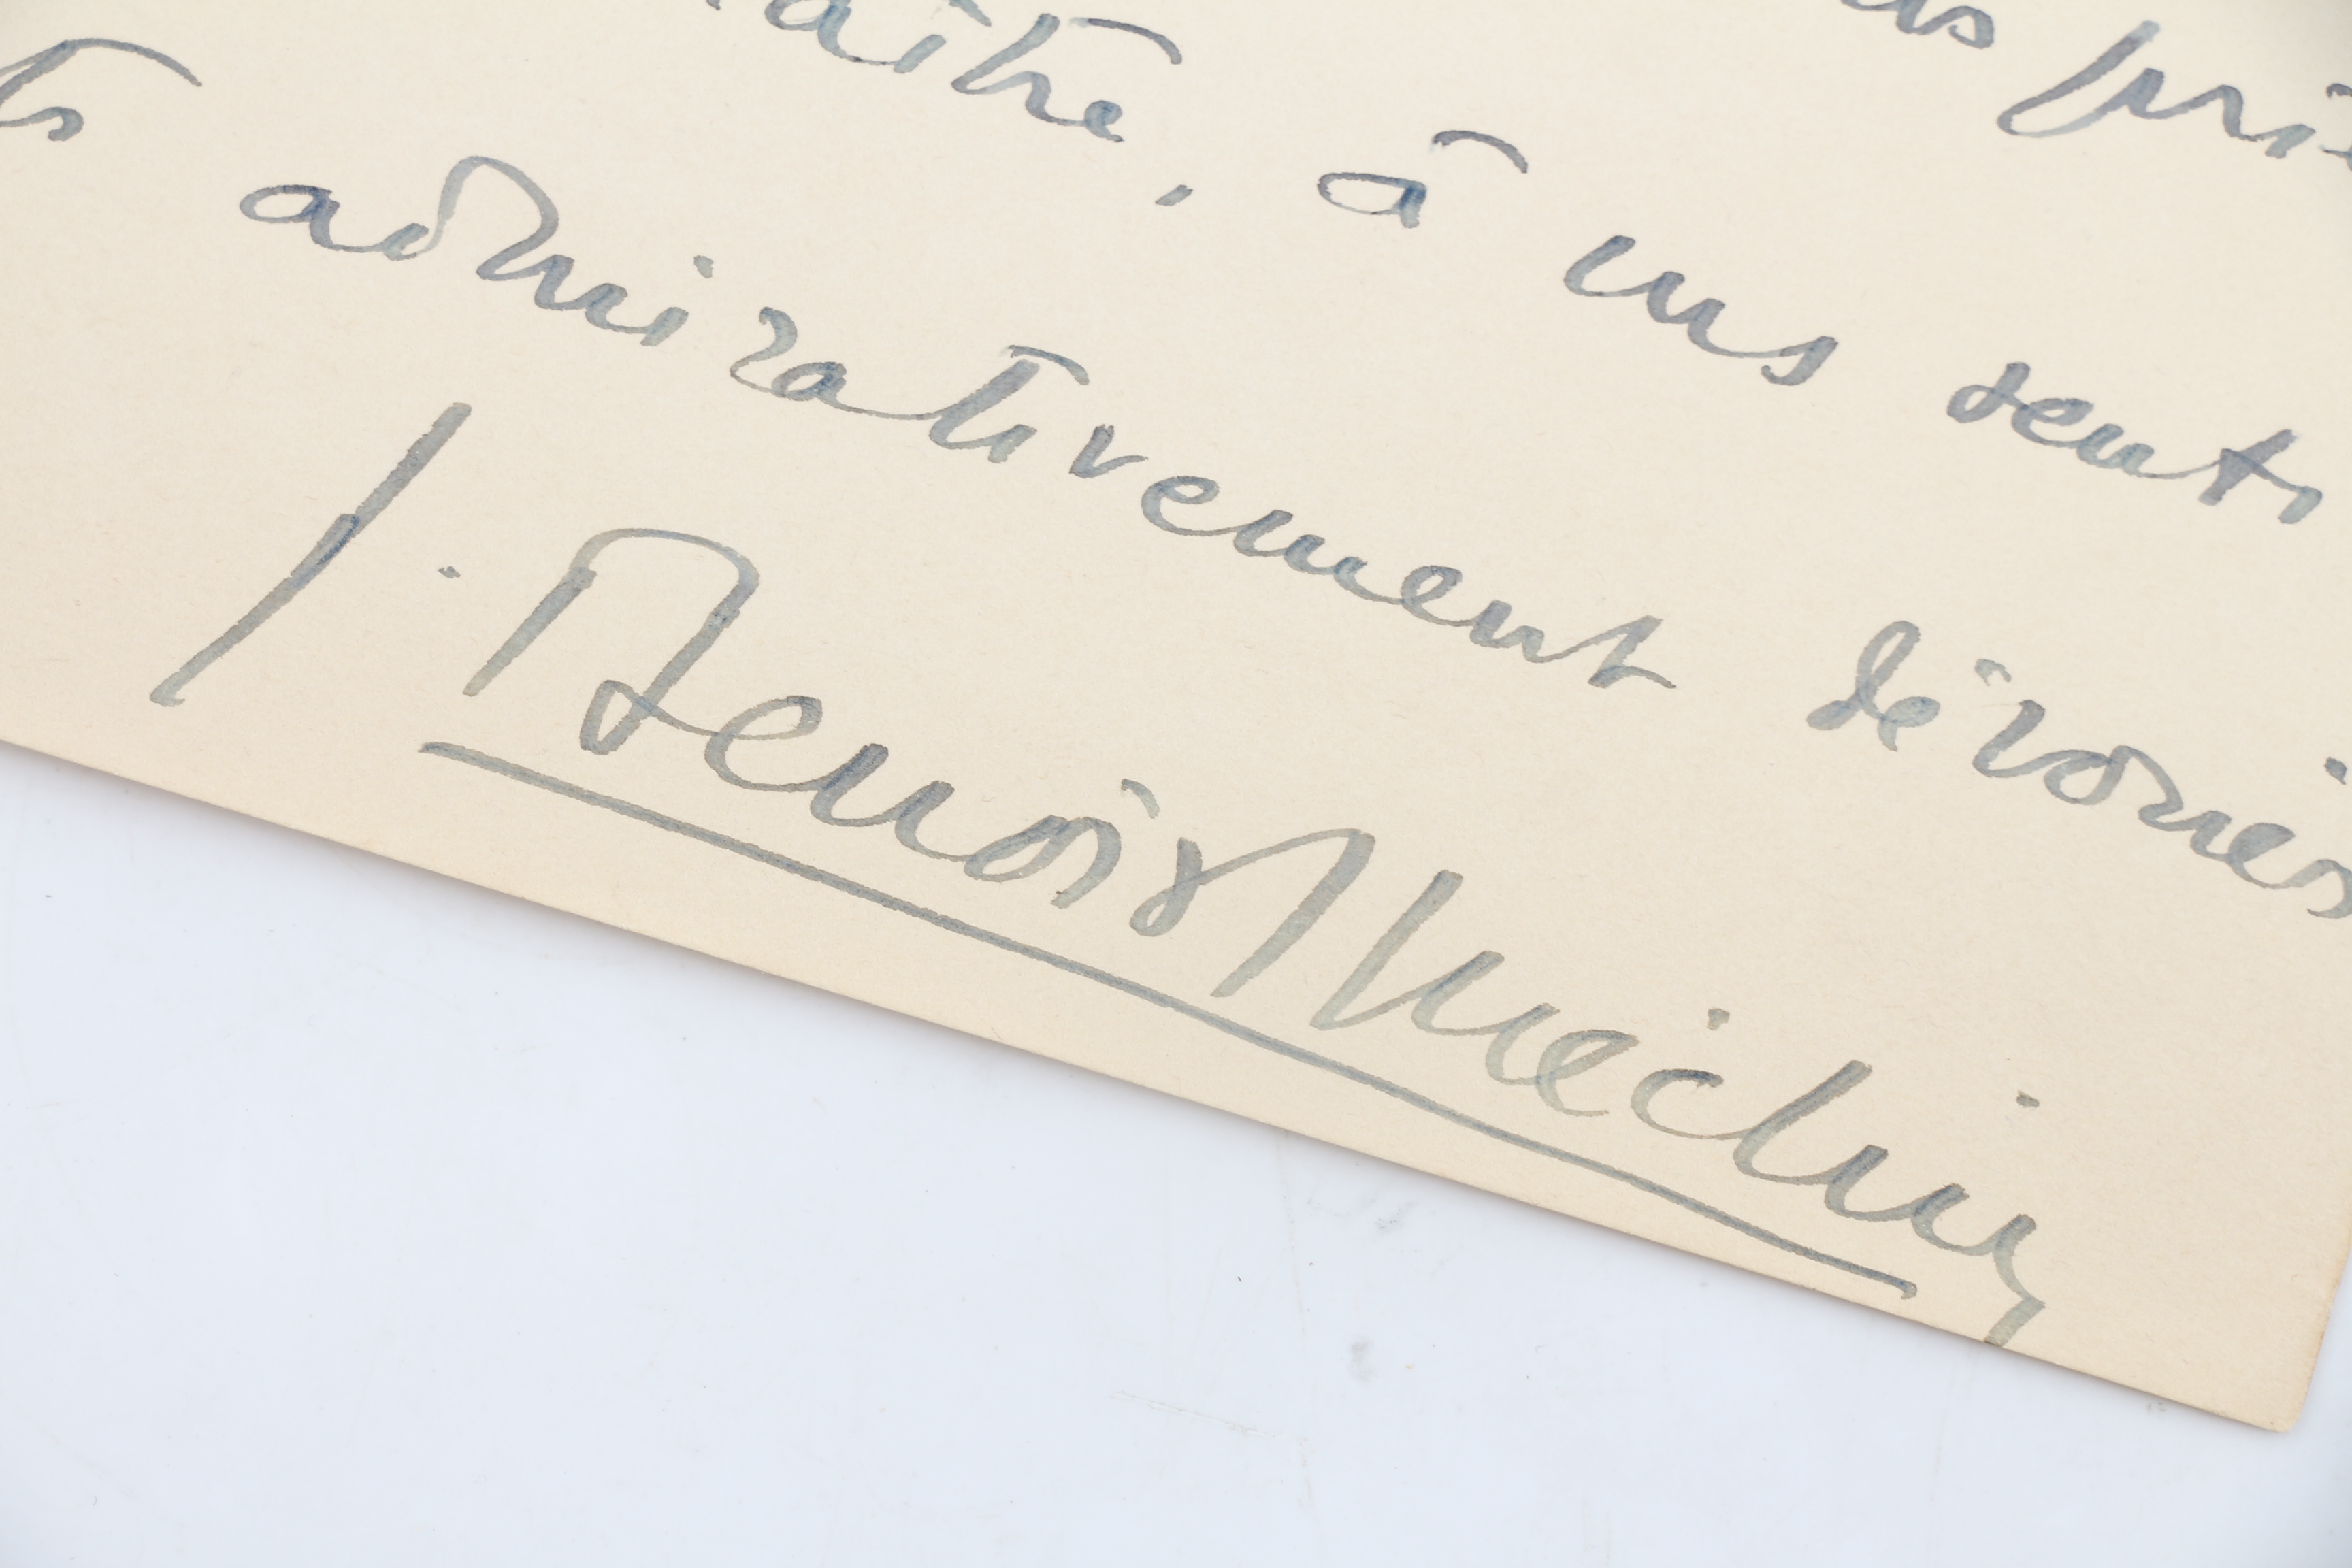 prie
aître, à mes senti
ts admirativement dévoués
J. Benoist-Méchin